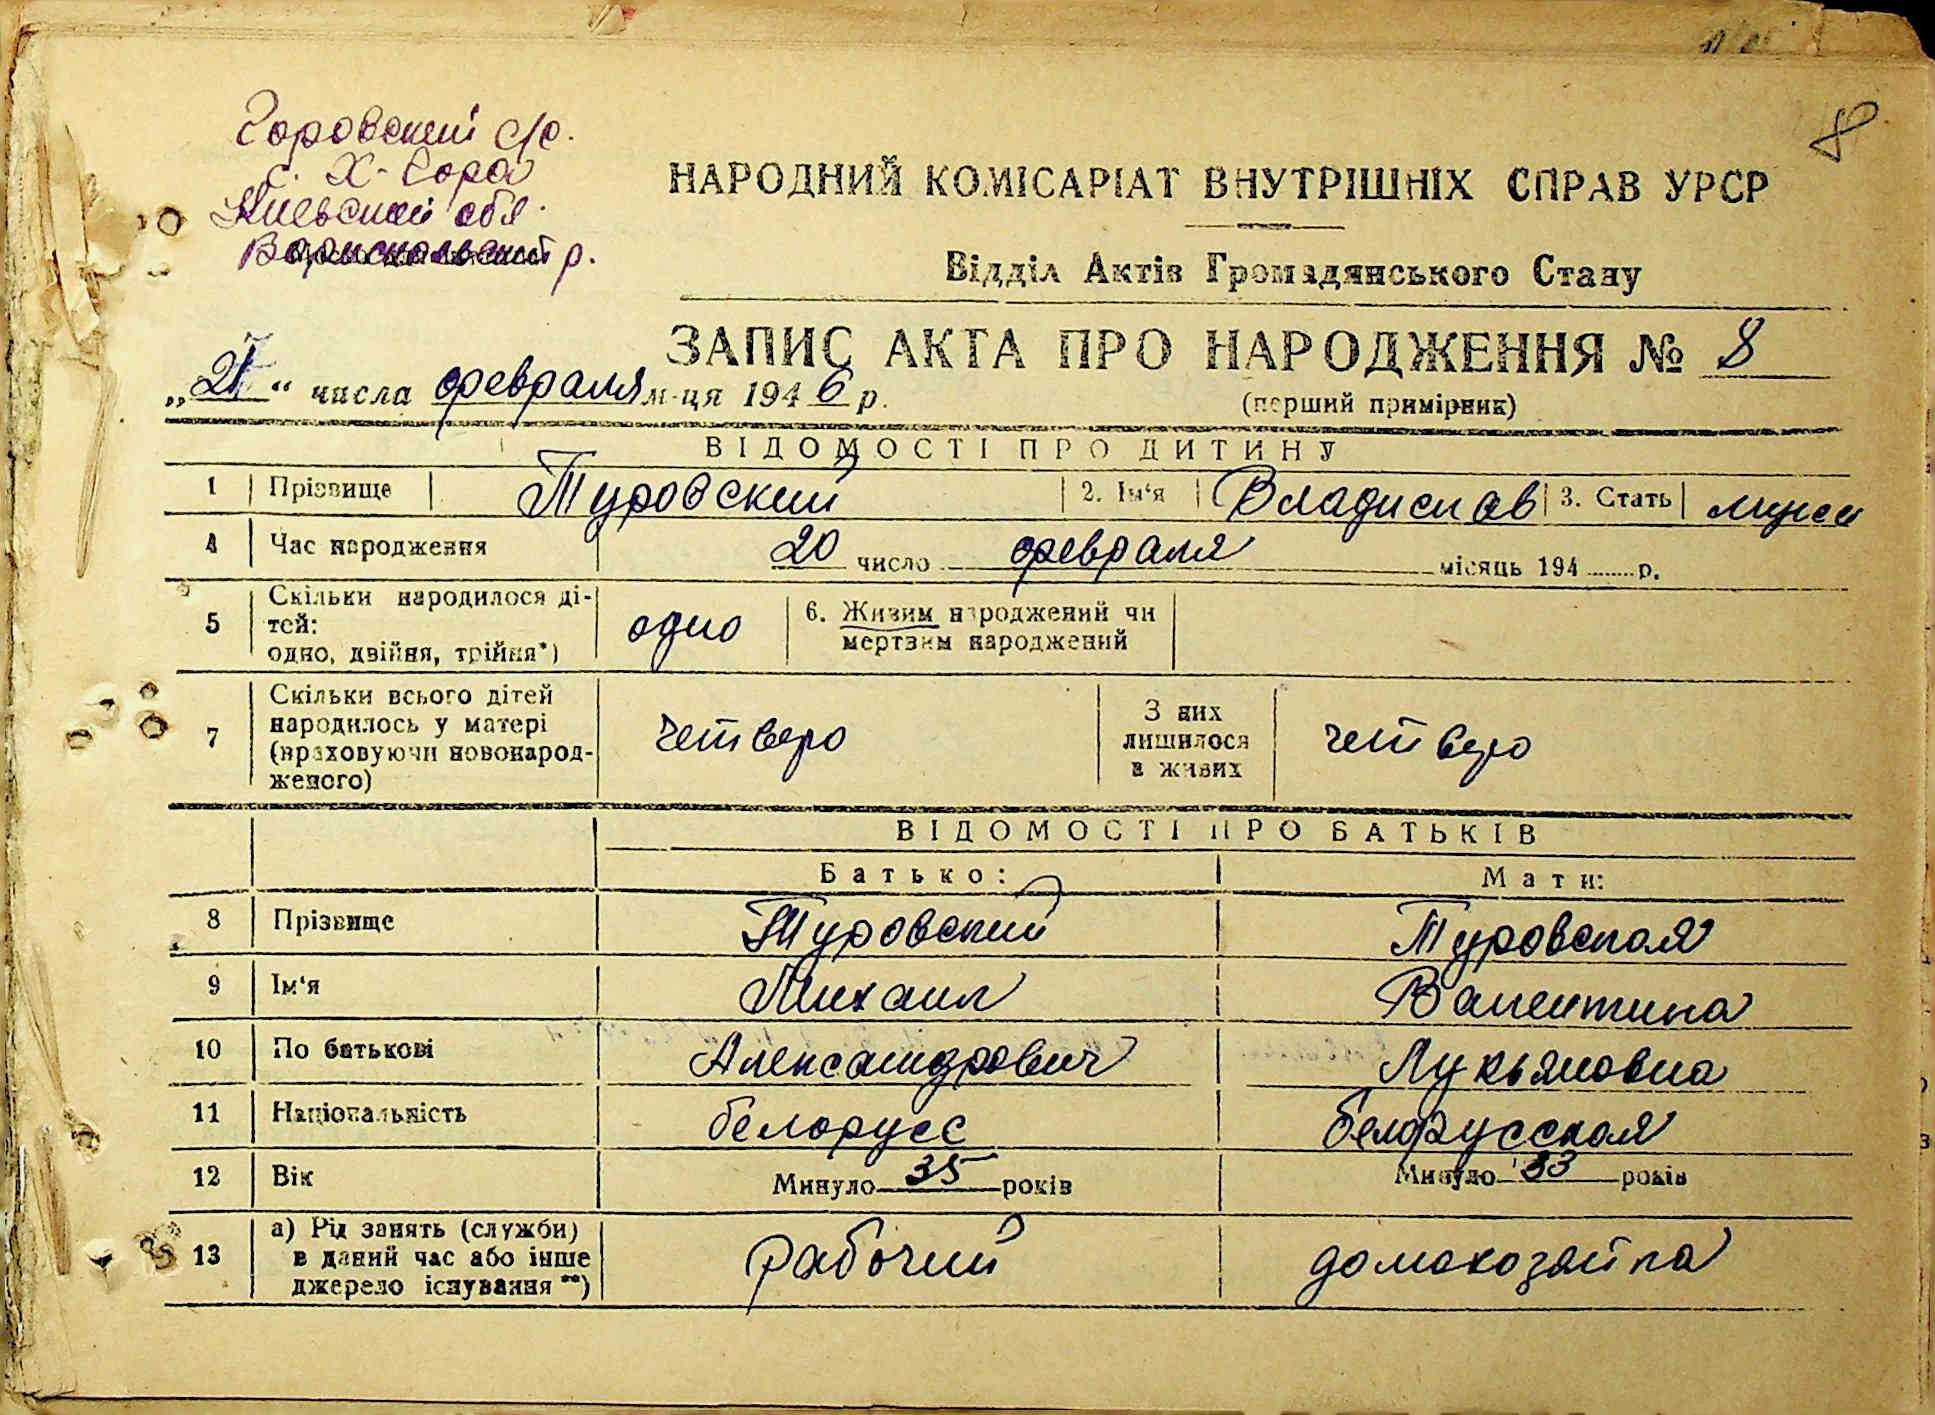 8
Горовский с/с.
с. Х-Гора
Киевской обл.
Бориспольский р.
НАРОДНИЙ КОМІСАРІАТ ВНУТРІШНІХ СПРАВ УРСР
Відділ Актів Громадянського Стану
ЗАПИС АКТА ПРО НАРОДЖЕННЯ № 8
„21“ числа февраля м-ця 1946 р.
(перший примірник)
ВІДОМОСТІ ПРО ДИТИНУ
1 Прізвище Туровский 2. Ім‘я Владислав 3. Стать мужск
4 Час народження 20 число февраля місяць 194 р.
5 Скільки народилося ді-
тей:
одно, двійня, трійня*) одно 6. Живим народжений чи
мертвим народжений
7 Скільки всього дітей
народилось у матері
(враховуючи новонарод-
женого) четверо З них
лишилося
в живих четверо
ВІДОМОСТІ ПРО БАТЬКІВ
Батько: Мати:
8 Прізвище Туровский Туровская
9 Ім‘я Михаил Валентина
10 По батькові Александрович Лукьяновна
11 Національність белорусс белорусская
12 Вік Минуло 35 років Минуло 33 років
13 а) Рід занять (служби)
в даний час або інше
джерело існування **) рабочий домохозяйка